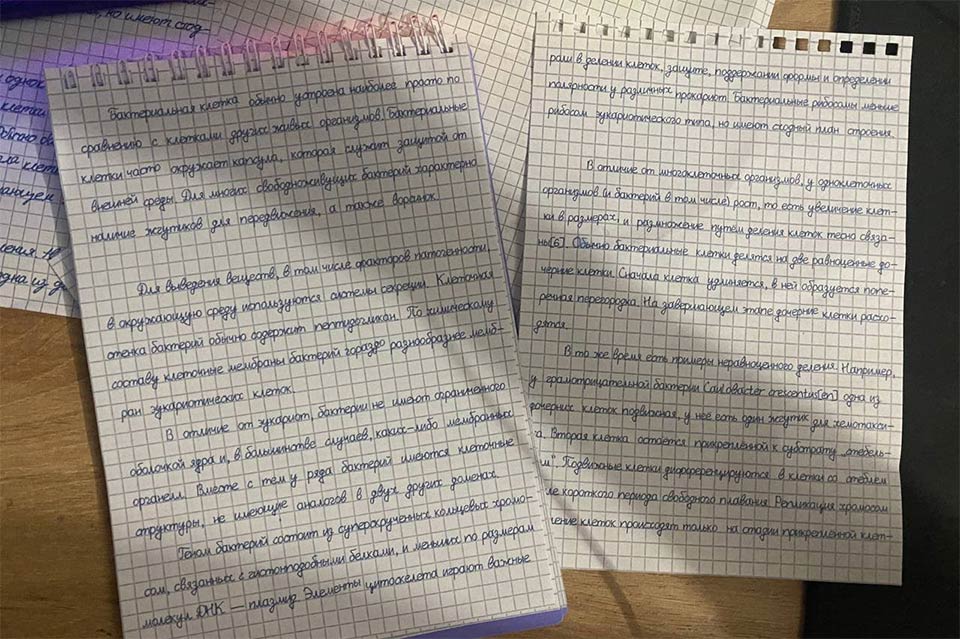 , но имеют сход
Бактериальная клетка обычно устроена наиболее просто по
сравнению с клетками других живых организмов. Бактериальные
клетки часто окружает капсула, которая служит защитой от
внешней среды. Для многих свободноживущих бактерий характерно
наличие жгутиков для передвижения, а также ворсинок.
Для выведения веществ, в том числе факторов патогенности,
в окружающую среду используются системы секреции. Клеточная
стенка бактерий обычно содержит пептидогликан. По химическому
составу клеточные мембраны бактерий гораздо разнообразнее мемб-
ран эукариотических клеток.
В отличие от эукариот, бактерии не имеют ограниченного
оболочкой ядра и, в большинстве случаев, каких-либо мембранных
органелл. Вместе с тем у ряда бактерий имеются клеточные
структуры, не имеющие аналогов в двух других доменах.
Геном бактерий состоит из суперскрученных кольцевых хромо-
сом, связанных с гистоноподобными белками, и меньших по размерам
молекул ДНК — плазмид. Элементы цитоскелета играют важные
роли в делении клеток, защите, поддержании формы и определении
полярности у различных прокариот. Бактериальные рибосомы меньше
рибосом эукариотического типа, но имеют сходный план строения.
В отличие от многоклеточных организмов, у одноклеточных
организмов (и бактерий в том числе) рост, то есть увеличение клет-
ки в размерах, и размножение путём деления клеток тесно связа-
ны[6]. Обычно бактериальные клетки делятся на две равноценные до-
черние клетки. Сначала клетка удлиняется, в ней образуется попе-
речная перегородка. На завершающем этапе дочерние клетки расхо-
дятся.
В то же время есть примеры неравноценного деления. Например,
у грамотрицательной бактерии Caulobacter crescentus[en] одна из
дочерних клеток подвижная, у неё есть один жгутик для хемотакси-
са. Вторая клетка остаётся прикреплённой к субстрату „стебель-
м". Подвижные клетки дифференцируются в клетки со стеблем
ле короткого периода свободного плавания. Репликация хромосом
ение клеток происходят только на стадии прикреплённой клет-